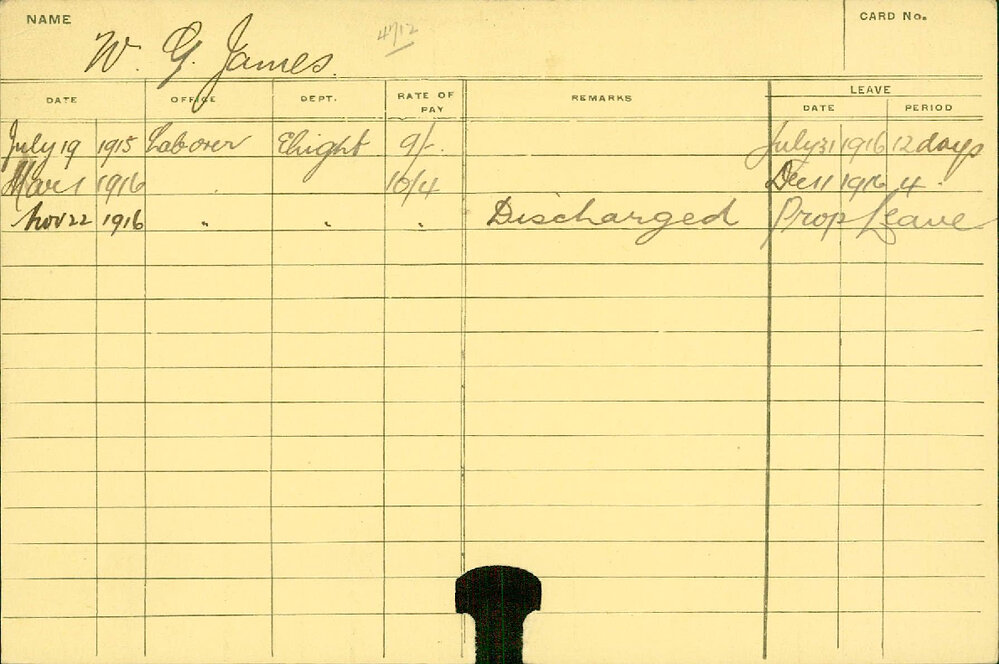 NAME
W. G. James
4712
CARD No.
DATE OFFICE DEPT. RATE OF PAY REMARKS LEAVE
DATE PERIOD
July 19 1915 Laborer Elight 9/- July 31 1916 12 days
Mar 1 1916 " 10/4 Dec 11 1916 4 "
Nov 22 1916 " " " Discharged Prop Leave